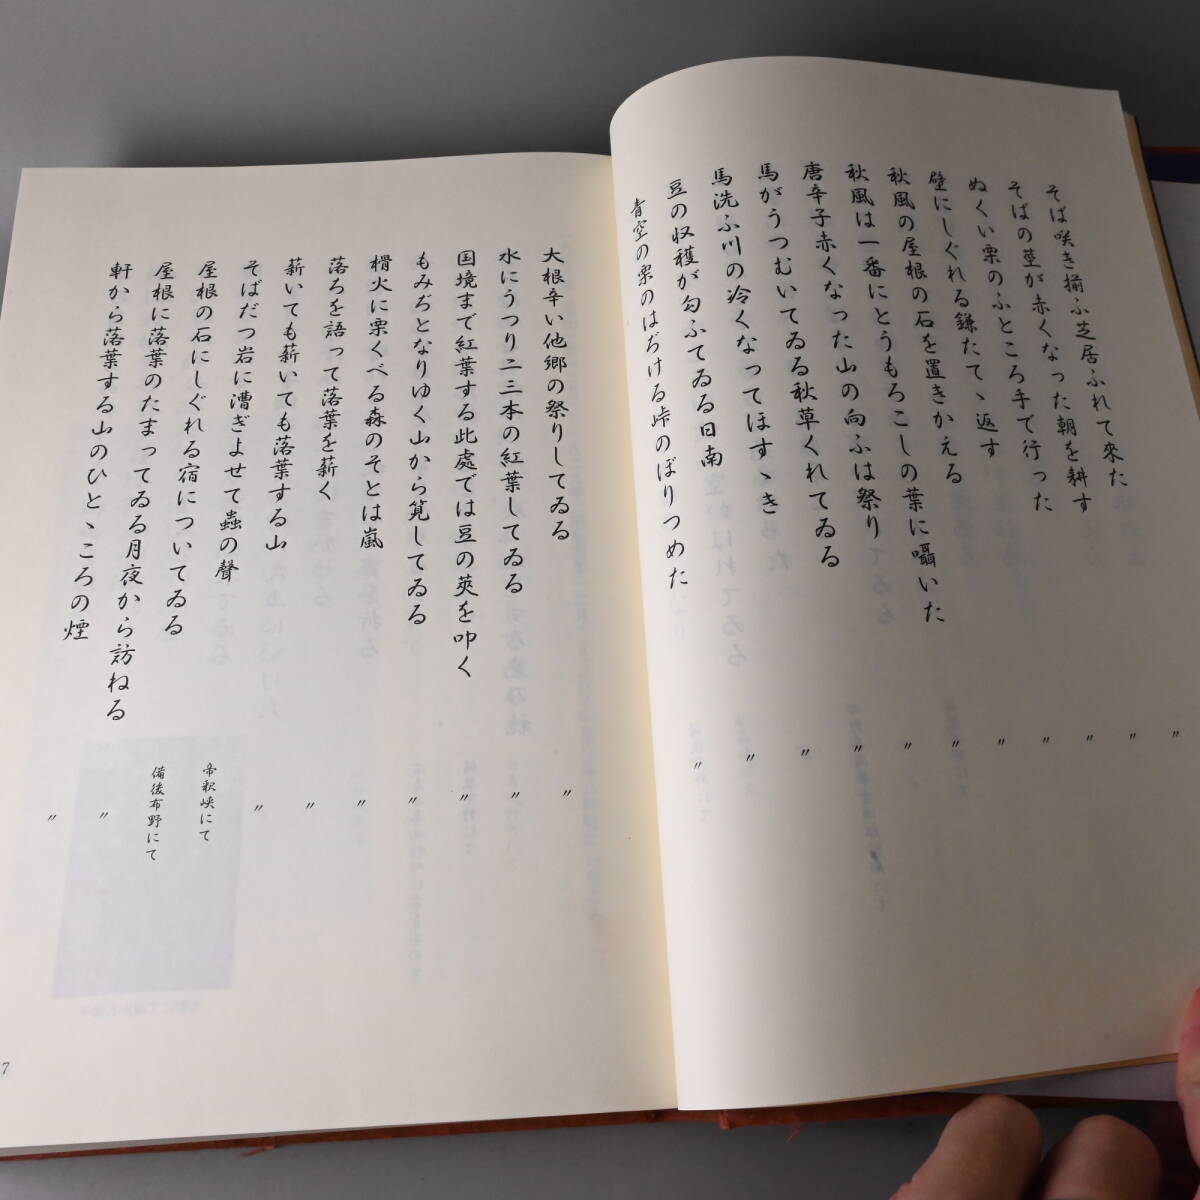 そば咲き揃ふ芝居ふれて來た 〃
そばの茎が赤くなった朝を耕す 〃
ぬくい栗のふところ手で行った 〃
壁にしぐれる鎌たてゝ返す 〃
秋風の屋根の石を置きかえる 〃
秋風は一番にとうもろこしの葉に囁いた 〃
唐辛子赤くなった山の向ふは祭り 〃
馬がうつむいてゐる秋草くれてゐる 〃
馬洗ふ川の冷くなってほすゝき 〃
豆の収穫が匂ふてゐる日南 〃
青空の栗のはぢける峠のぼりつめた 〃
大根辛い他郷の祭りしてゐる 〃
水にうつり二三本の紅葉してゐる 〃
国境まで紅葉する此處では豆の莢を叩く 〃
もみぢとなりゆく山から筧してゐる 〃
榾火に栗くべる森のそとは嵐 〃
落ろを語って落葉を薪く 〃
薪いても薪いても落葉する山 〃
そばだつ岩に漕ぎよせて蟲の聲 帝釈峡にて
屋根の石にしぐれる宿についてゐる 備後布野にて
屋根に落葉のたまってゐる月夜から訪ねる 〃
軒から落葉する山のひとゝころの煙 〃
7